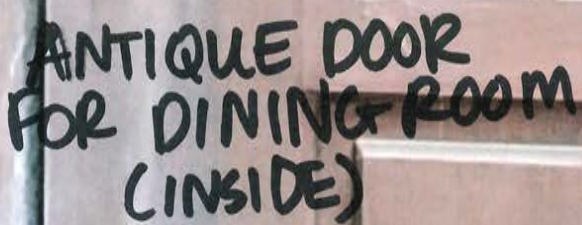 ANTIQUE DOOR
FOR DINING ROOM
(INSIDE)